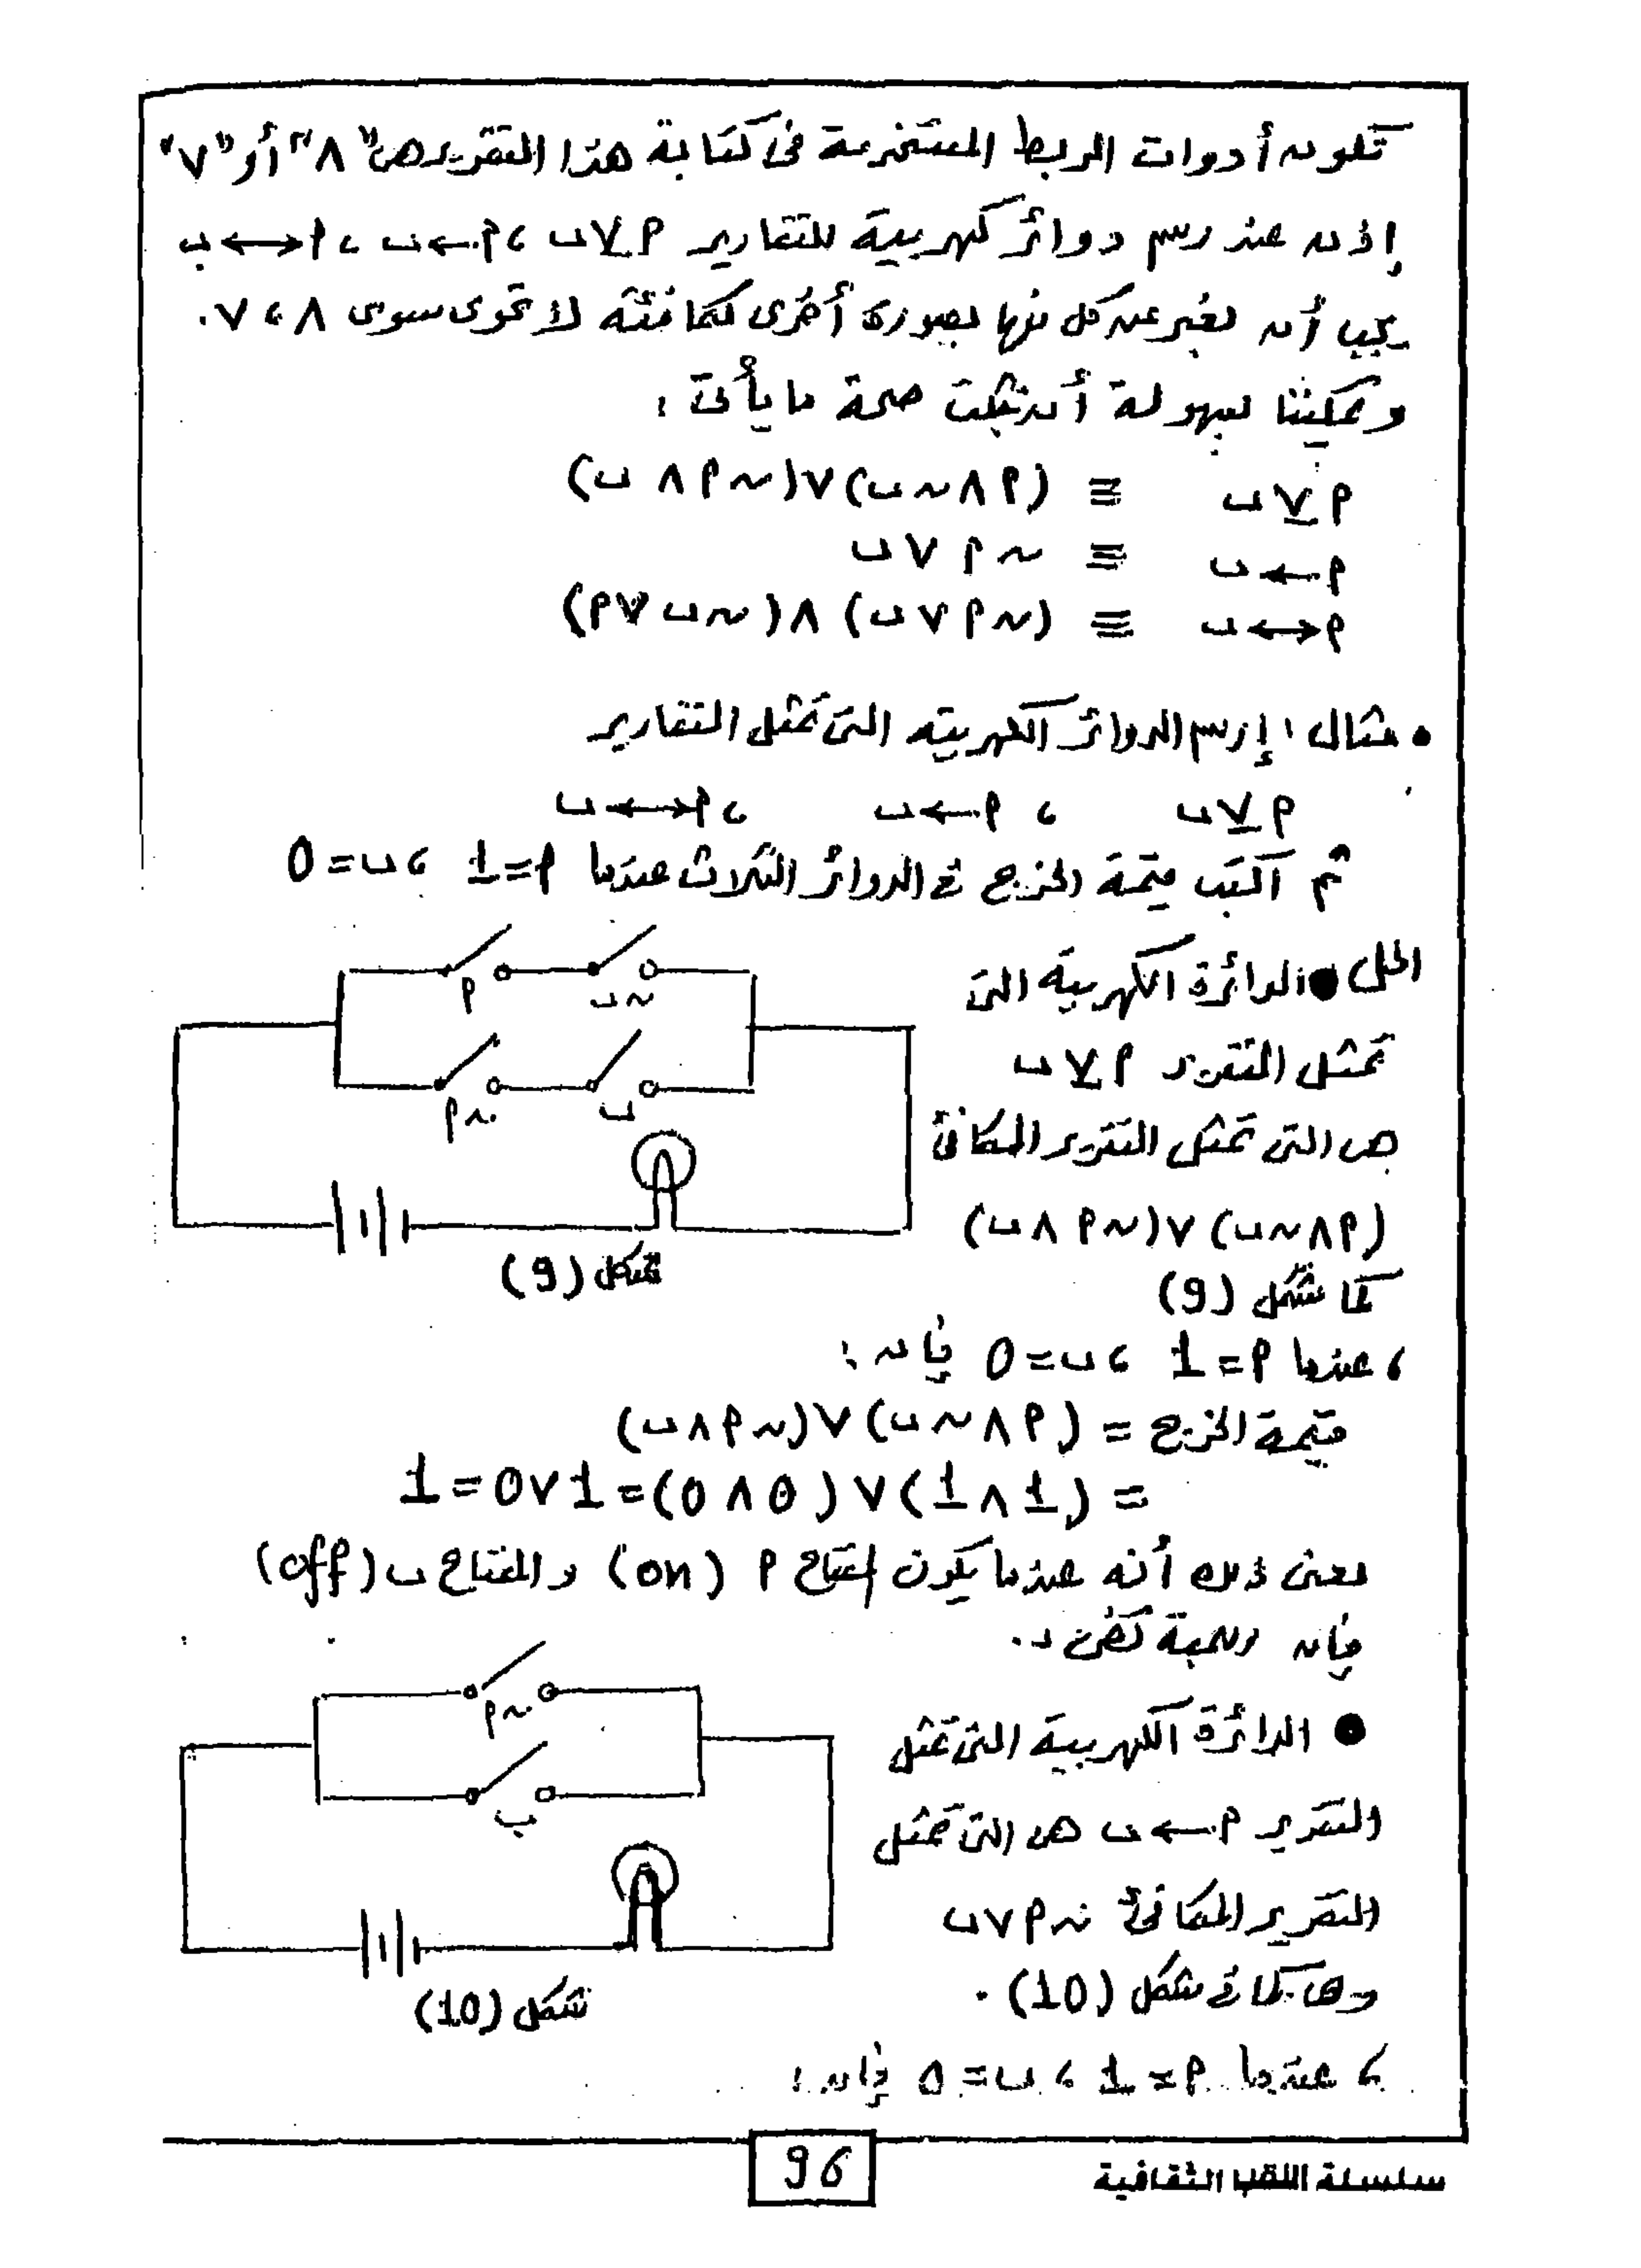 تكون أدوات الربط المستخدمة فى كتابة هذا التقرير هى "∧" أو "∨"
إذن عند رسم دوائر كهربية للتقارير م ⊻ ب ، م ← ب ، م ↔ ب
يجب أن نعبر عن كل منها بصورة أخرى مكافئة لا تحوى سوى ∧ ، ∨ .
ويمكننا بسهولة أن نثبت صحة ما يأتى :
م ⊻ ب ≡ (م ∧ ~ ب) ∨ (~ م ∧ ب)
م ← ب ≡ ~ م ∨ ب
م ↔ ب ≡ (~ م ∨ ب) ∧ (~ ب ∨ م)
• مثال : إرسم الدوائر الكهربية التى تمثل التقارير
م ⊻ ب ، م ← ب ، م ↔ ب
ثم اكتب قيمة الخرج فى الدوائر الثلاث عندما م = 1 ، ب = 0
الحل ● الدائرة الكهربية التى
تمثل التقرير م ⊻ ب
هى التى تمثل التقرير المكافئ
(م ∧ ~ ب) ∨ (~ م ∧ ب)
كما شكل (9)
م
~ ب
~ م
ب
شكل (9)
، عندما م = 1 ، ب = 0 فإن :
قيمة الخرج = (م ∧ ~ ب) ∨ (~ م ∧ ب)
= (1 ∧ 1) ∨ (0 ∧ 0) = 1 ∨ 0 = 1
معنى ذلك أنه عندما يكون المفتاح م (on) والمفتاح ب (off)
فإن اللمبة تضئ .
● الدائرة الكهربية التى تمثل
التقرير م ← ب هى التى تمثل
التقرير المكافئ ~ م ∨ ب
وهى كما فى شكل (10) .
~ م
ب
شكل (10)
، عندما م = 1 ، ب = 0 فإن :
96
سلسلة اللقب الثقافية